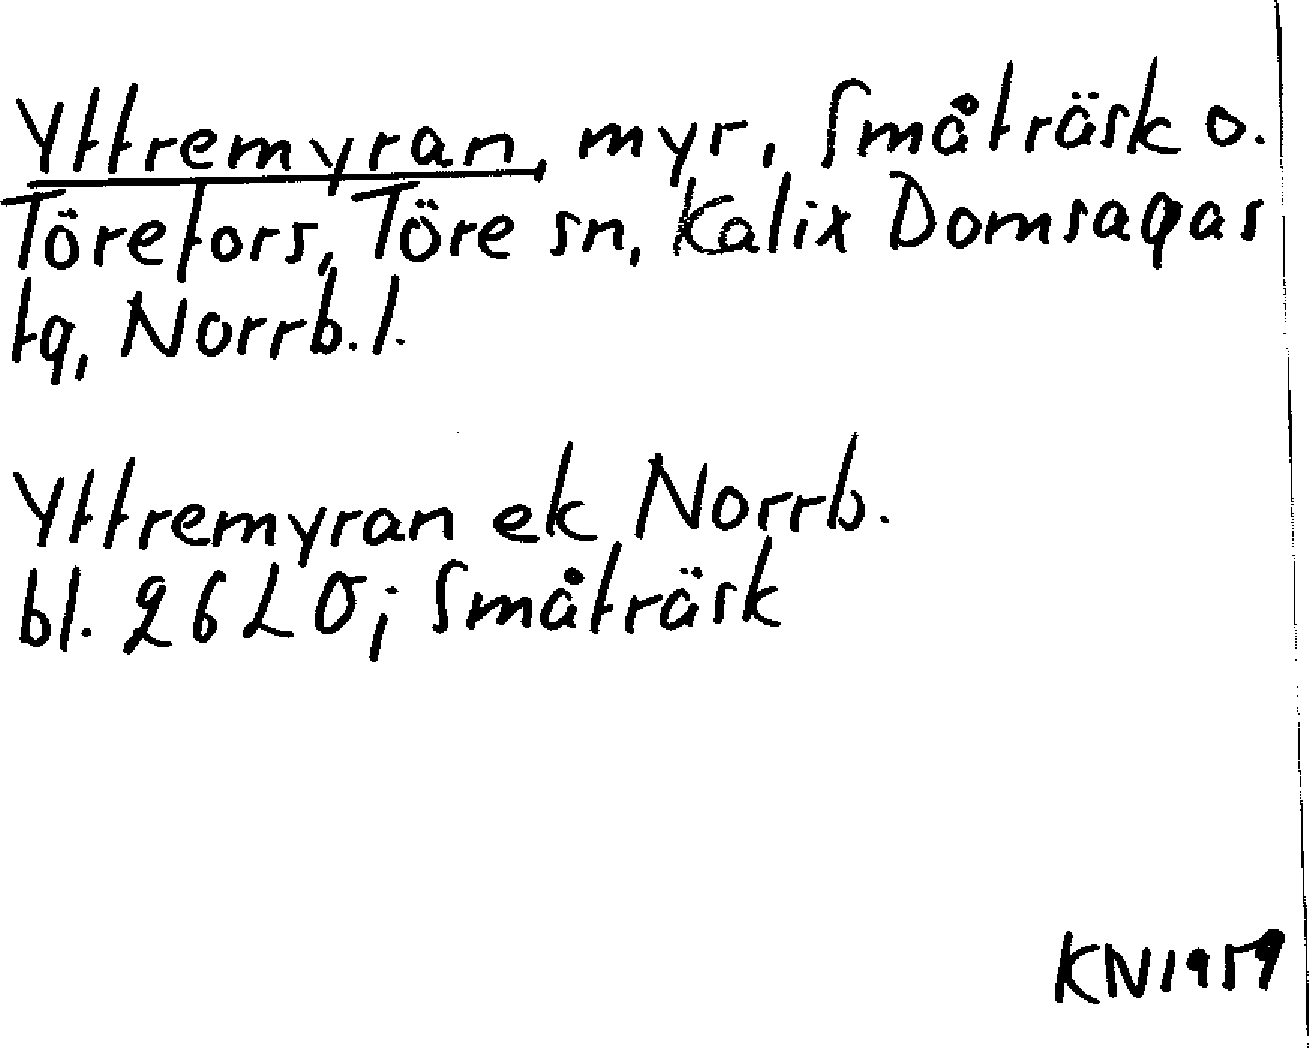 Yttremyran, myr, Småträsk o.
Törefors, Töre sn, Kalix Domsagas
tg, Norrb. l.
Yttremyran ek Norrb.
bl. 26 L O; Småträsk
KN 1959